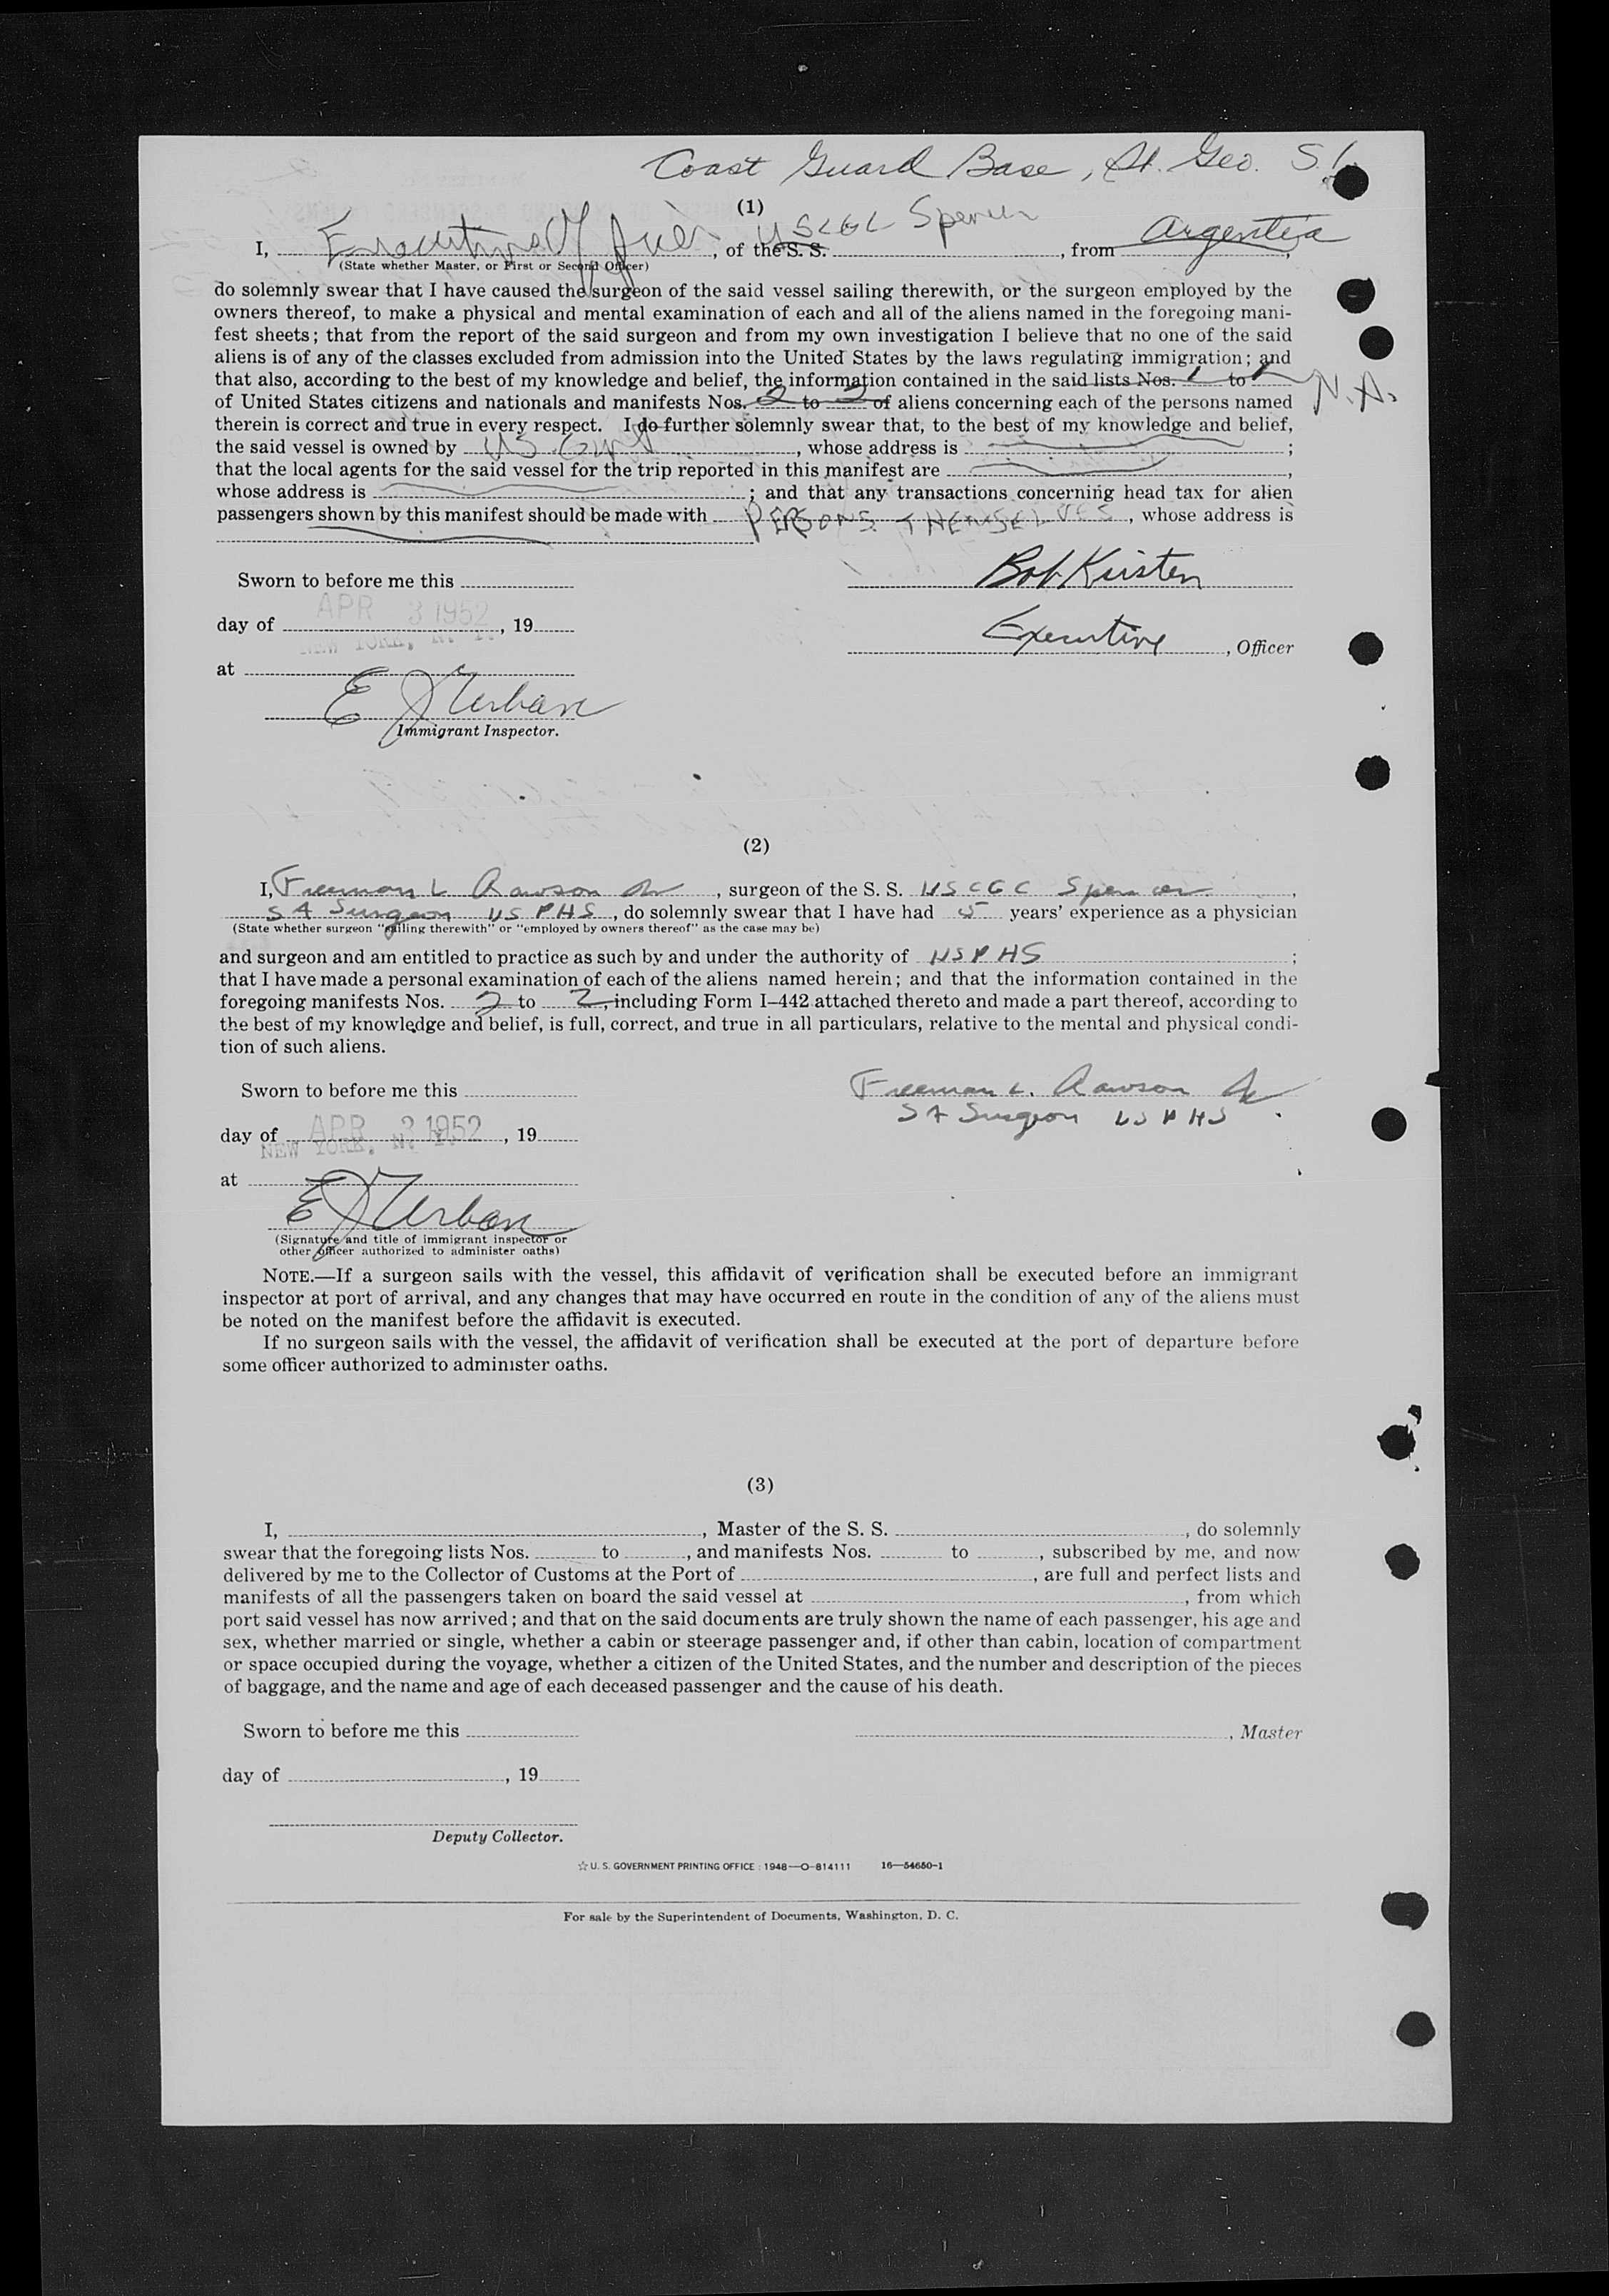 Coast Guard Base, St. Geo. S.I.
(1)
I, Executive Officer, of the S. S. USCGC Spencer, from Argentia,
(State whether Master, or First or Second Officer)
do solemnly swear that I have caused the surgeon of the said vessel sailing therewith, or the surgeon employed by the
owners thereof, to make a physical and mental examination of each and all of the aliens named in the foregoing mani-
fest sheets; that from the report of the said surgeon and from my own investigation I believe that no one of the said
aliens is of any of the classes excluded from admission into the United States by the laws regulating immigration; and
that also, according to the best of my knowledge and belief, the information contained in the said lists Nos. 1 to 1
N.A.
of United States citizens and nationals and manifests Nos. 2 to 2 of aliens concerning each of the persons named
therein is correct and true in every respect. I do further solemnly swear that, to the best of my knowledge and belief,
the said vessel is owned by US Govt, whose address is ;
that the local agents for the said vessel for the trip reported in this manifest are ,
whose address is ; and that any transactions concerning head tax for alien
passengers shown by this manifest should be made with PERSONS THEMSELVES, whose address is
Sworn to before me this
Bob Kirsten
APR 3 1952
day of , 19
NEW YORK, N. Y.
Executive, Officer
at
E J Urban
Immigrant Inspector.
(2)
I, Freeman L Rawson Jr, surgeon of the S. S. USCGC Spencer,
SA Surgeon USPHS, do solemnly swear that I have had 5 years' experience as a physician
(State whether surgeon "sailing therewith" or "employed by owners thereof" as the case may be)
and surgeon and am entitled to practice as such by and under the authority of USPHS ;
that I have made a personal examination of each of the aliens named herein; and that the information contained in the
foregoing manifests Nos. 2 to 2, including Form I–442 attached thereto and made a part thereof, according to
the best of my knowledge and belief, is full, correct, and true in all particulars, relative to the mental and physical condi-
tion of such aliens.
Sworn to before me this
Freeman L. Rawson Jr
SA Surgeon USPHS.
day of APR 3 1952, 19
NEW YORK, N. Y.
at
E J Urban
(Signature and title of immigrant inspector or
other officer authorized to administer oaths)
NOTE.—If a surgeon sails with the vessel, this affidavit of verification shall be executed before an immigrant
inspector at port of arrival, and any changes that may have occurred en route in the condition of any of the aliens must
be noted on the manifest before the affidavit is executed.
If no surgeon sails with the vessel, the affidavit of verification shall be executed at the port of departure before
some officer authorized to administer oaths.
(3)
I, , Master of the S. S. , do solemnly
swear that the foregoing lists Nos. to , and manifests Nos. to , subscribed by me, and now
delivered by me to the Collector of Customs at the Port of , are full and perfect lists and
manifests of all the passengers taken on board the said vessel at , from which
port said vessel has now arrived; and that on the said documents are truly shown the name of each passenger, his age and
sex, whether married or single, whether a cabin or steerage passenger and, if other than cabin, location of compartment
or space occupied during the voyage, whether a citizen of the United States, and the number and description of the pieces
of baggage, and the name and age of each deceased passenger and the cause of his death.
Sworn to before me this
, Master
day of , 19
Deputy Collector.
☆ U. S. GOVERNMENT PRINTING OFFICE : 1948—O-814111 16—54650-1
For sale by the Superintendent of Documents, Washington, D. C.